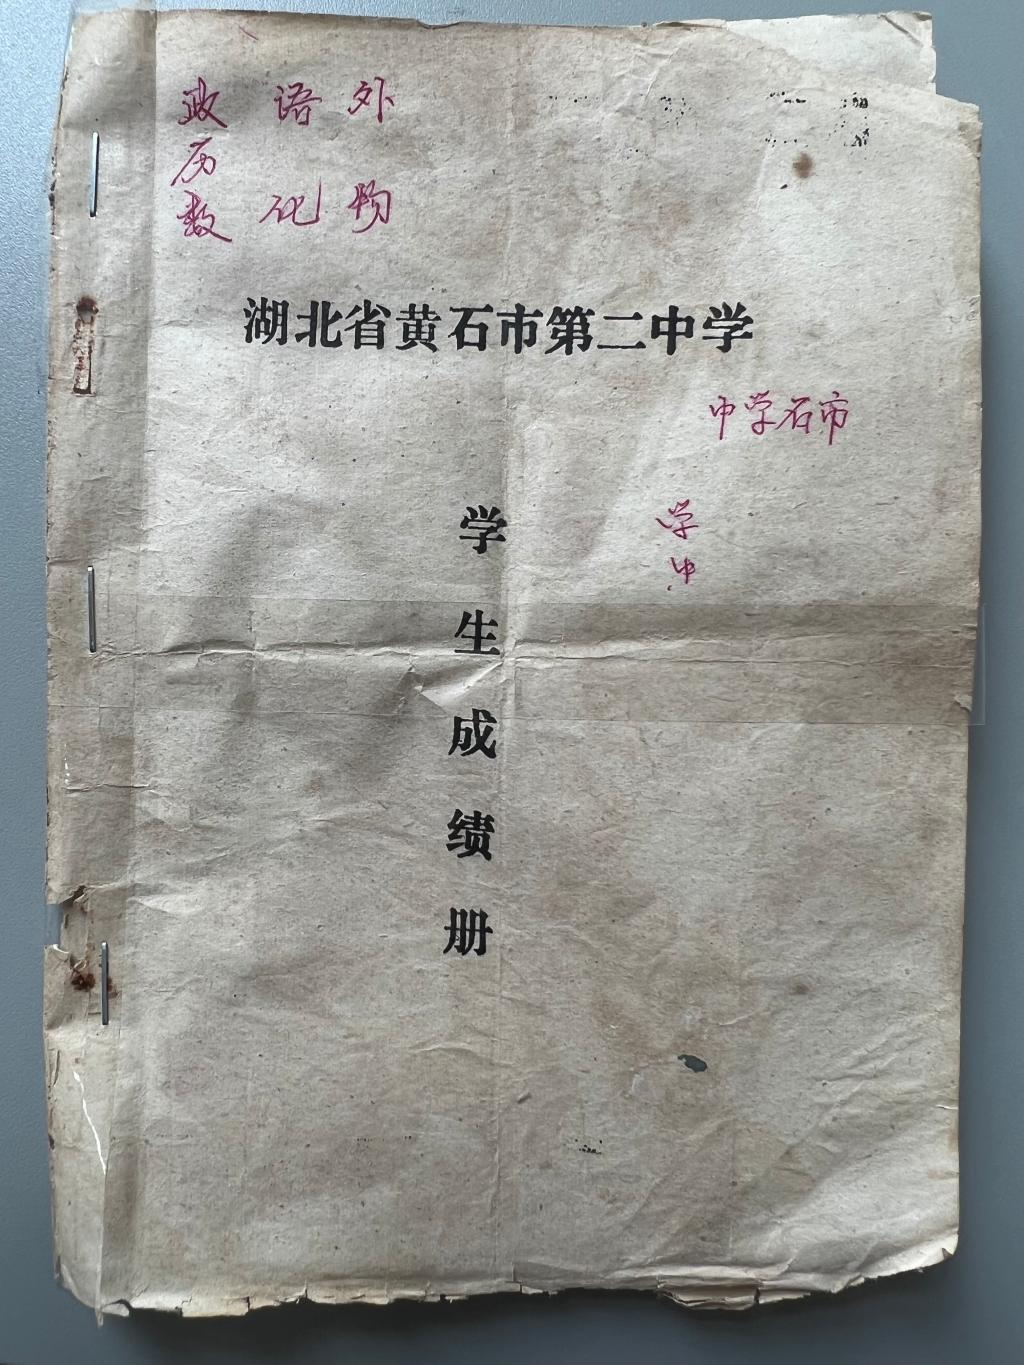 政 语 外
历
数 化 物
湖北省黄石市第二中学
中学石市
学
中
学
生
成
绩
册